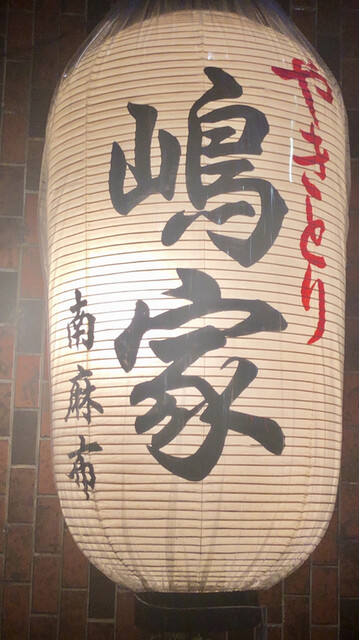 やきとり
嶋家
南麻布